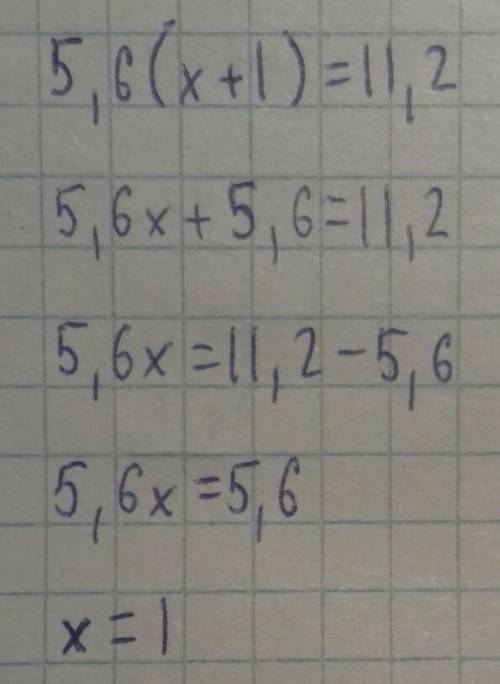 5,6(x+1)=11,2
5,6x+5,6=11,2
5,6x=11,2-5,6
5,6x=5,6
x=1